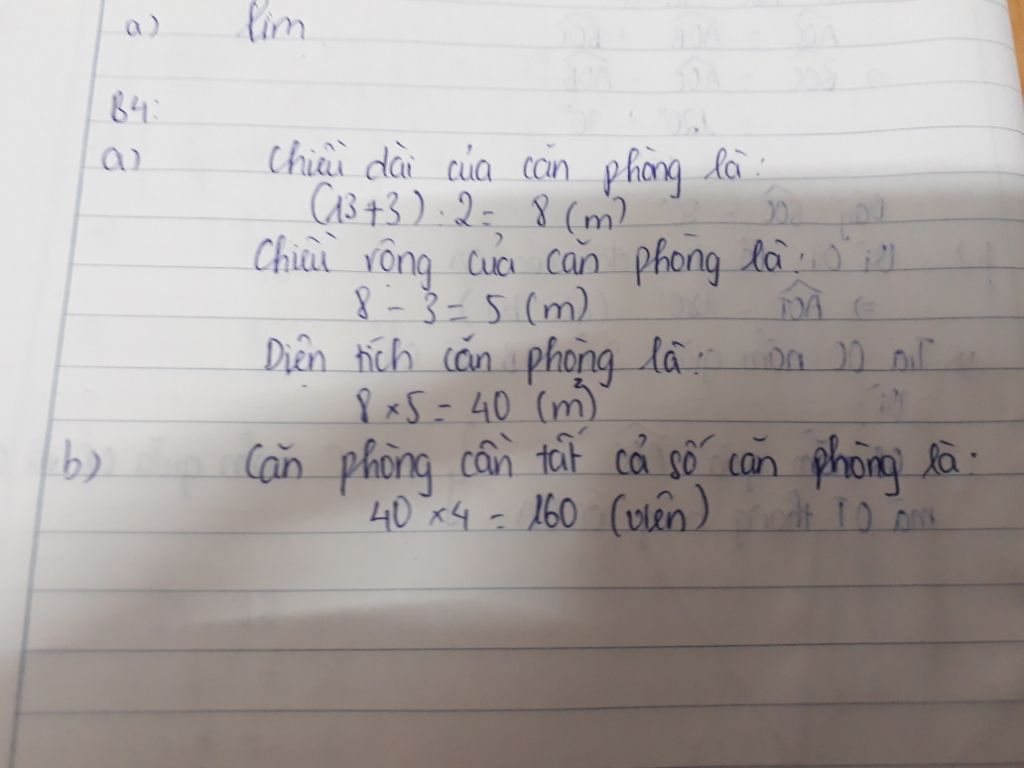 a) lim
B4:
a) Chiều dài của căn phòng là:
(13+3) : 2 = 8 (m)
Chiều rộng của căn phòng là:
8 - 3 = 5 (m)
Diện tích căn phòng là:
8 × 5 = 40 (m²)
b) Căn phòng cần tất cả số căn phòng là:
40 × 4 = 160 (viên)